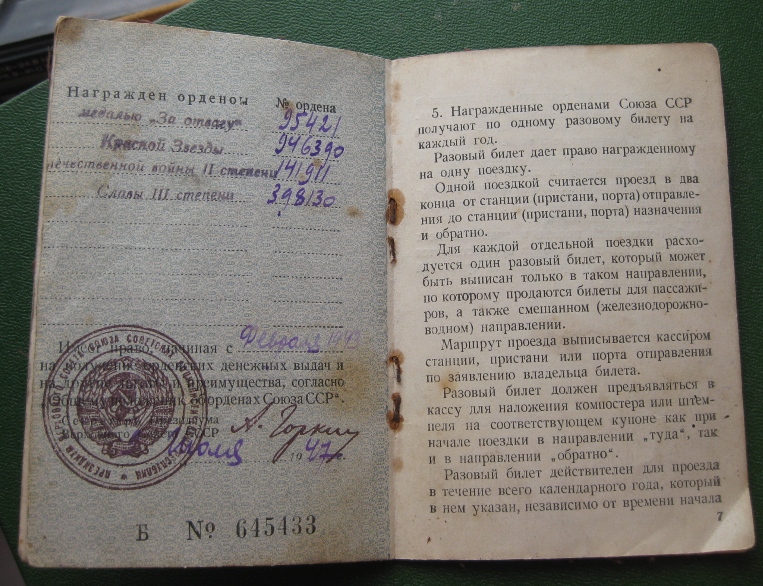 Награжден орденом № ордена
медалью „За отвагу“ 95421
Красной Звезды 946390
Отечественной войны II степени 141911
Славы III степени 398130
Имеет право, начиная с Февраля 1943
на получение орденских денежных выдач и
на другие льготы и преимущества, согласно
„Общему положению об орденах Союза ССР“.
Секретарь Президиума
Верховного Совета СССР А. Горкин
июля 1947 г.
Б № 645433
5. Награжденные орденами Союза ССР
получают по одному разовому билету на
каждый год.
Разовый билет дает право награжденному
на одну поездку.
Одной поездкой считается проезд в два
конца от станции (пристани, порта) отправле-
ния до станции (пристани, порта) назначения
и обратно.
Для каждой отдельной поездки расхо-
дуется один разовый билет, который может
быть выписан только в таком направлении,
по которому продаются билеты для пассажи-
ров, а также смешанном (железнодорожно-
водном) направлении.
Маршрут проезда выписывается кассиром
станции, пристани или порта отправления
по заявлению владельца билета.
Разовый билет должен предъявляться в
кассу для наложения компостера или штем-
пеля на соответствующем купоне как при
начале поездки в направлении „туда“, так
и в направлении „обратно“.
Разовый билет действителен для проезда
в течение всего календарного года, который
в нем указан, независимо от времени начала
7